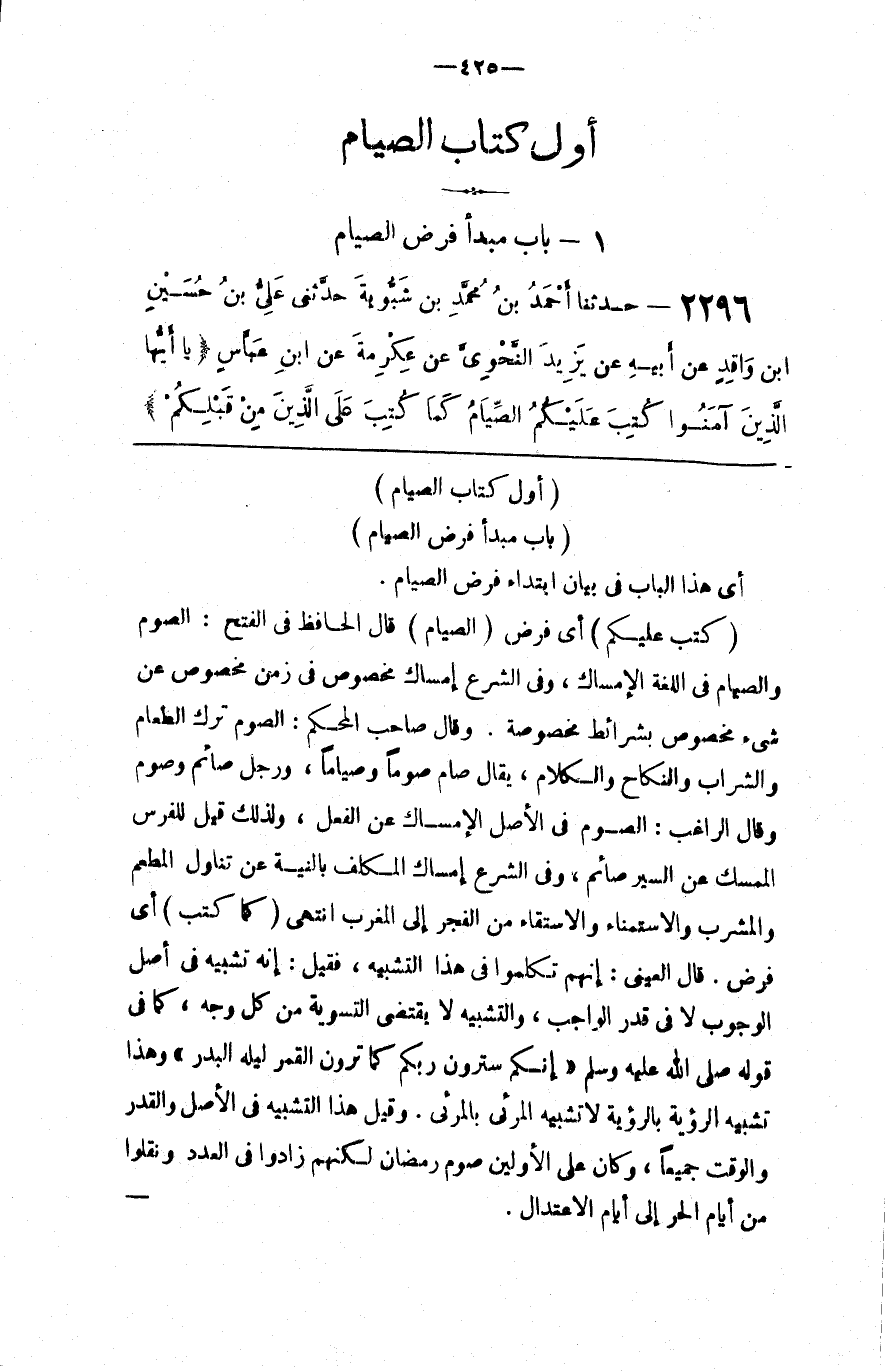 —٤٢٥—
أول كتاب الصيام
١ – باب مبدأ فرض الصيام
٢٢٩٦ – حدثنا أَحْمَدُ بنُ مُحمَّدِ بن شَبُّويَةَ حدَّثنى عَلِىُّ بنُ حُسَيْنِ
ابن وَاقِدٍ عن أَبيهِ عن يَزِيدَ النَّحْوِىِّ عن عِكْرِمةَ عن ابنِ عَبَّاسٍ ﴿يا أَيُّها
الَّذِينَ آمَنُوا كُتِبَ عَلَيْكُمُ الصِّيَامُ كَمَا كُتِبَ عَلَى الَّذِينَ مِنْ قَبْلِكُمْ﴾
( أول كتاب الصيام )
( باب مبدأ فرض الصيام )
أى هذا الباب فى بيان ابتداء فرض الصيام .
( كتب عليكم ) أى فرض ( الصيام ) قال الحافظ فى الفتح : الصوم
والصيام فى اللغة الإمساك ، وفى الشرع إمساك مخصوص فى زمن مخصوص عن
شىء مخصوص بشرائط مخصوصة . وقال صاحب المحكم : الصوم ترك الطعام
والشراب والنكاح والكلام ، يقال صام صوماً وصياماً ، ورجل صائم وصوم
وقال الراغب : الصوم فى الأصل الإمساك عن الفعل ، ولذلك قيل للفرس
الممسك عن السير صائم ، وفى الشرع إمساك المكلف بالنية عن تناول المطعم
والمشرب والاستمناء والاستقاء من الفجر إلى المغرب انتهى ( كما كتب ) أى
فرض . قال العينى : إنهم تكلموا فى هذا التشبيه ، فقيل : إنه تشبيه فى أصل
الوجوب لا فى قدر الواجب ، والتشبيه لا يقتضى التسوية من كل وجه ، كما فى
قوله صلى الله عليه وسلم « إنكم سترون ربكم كما ترون القمر ليله البدر » وهذا
تشبيه الرؤية بالرؤية لا تشبيه المرئى بالمرئى . وقيل هذا التشبيه فى الأصل والقدر
والوقت جميعاً ، وكان على الأولين صوم رمضان لكنهم زادوا فى العدد ونقلوا
من أيام الحر إلى أيام الاعتدال .